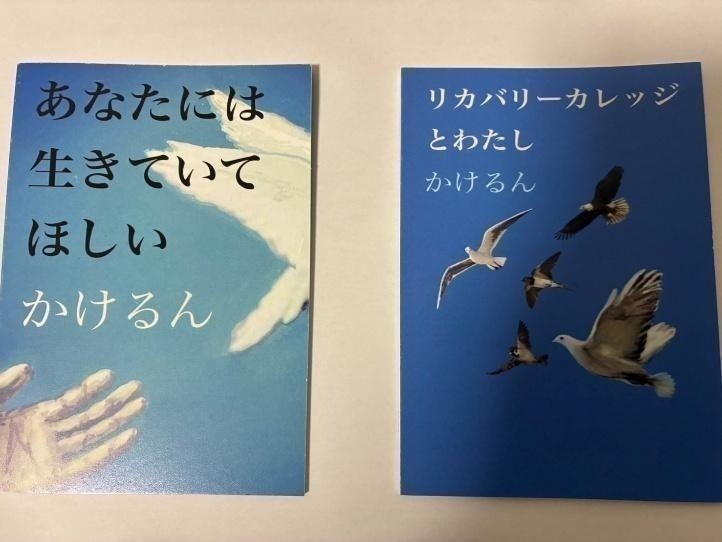 あなたには
生きていて
ほしい
かけるん
リカバリーカレッジ
とわたし
かけるん